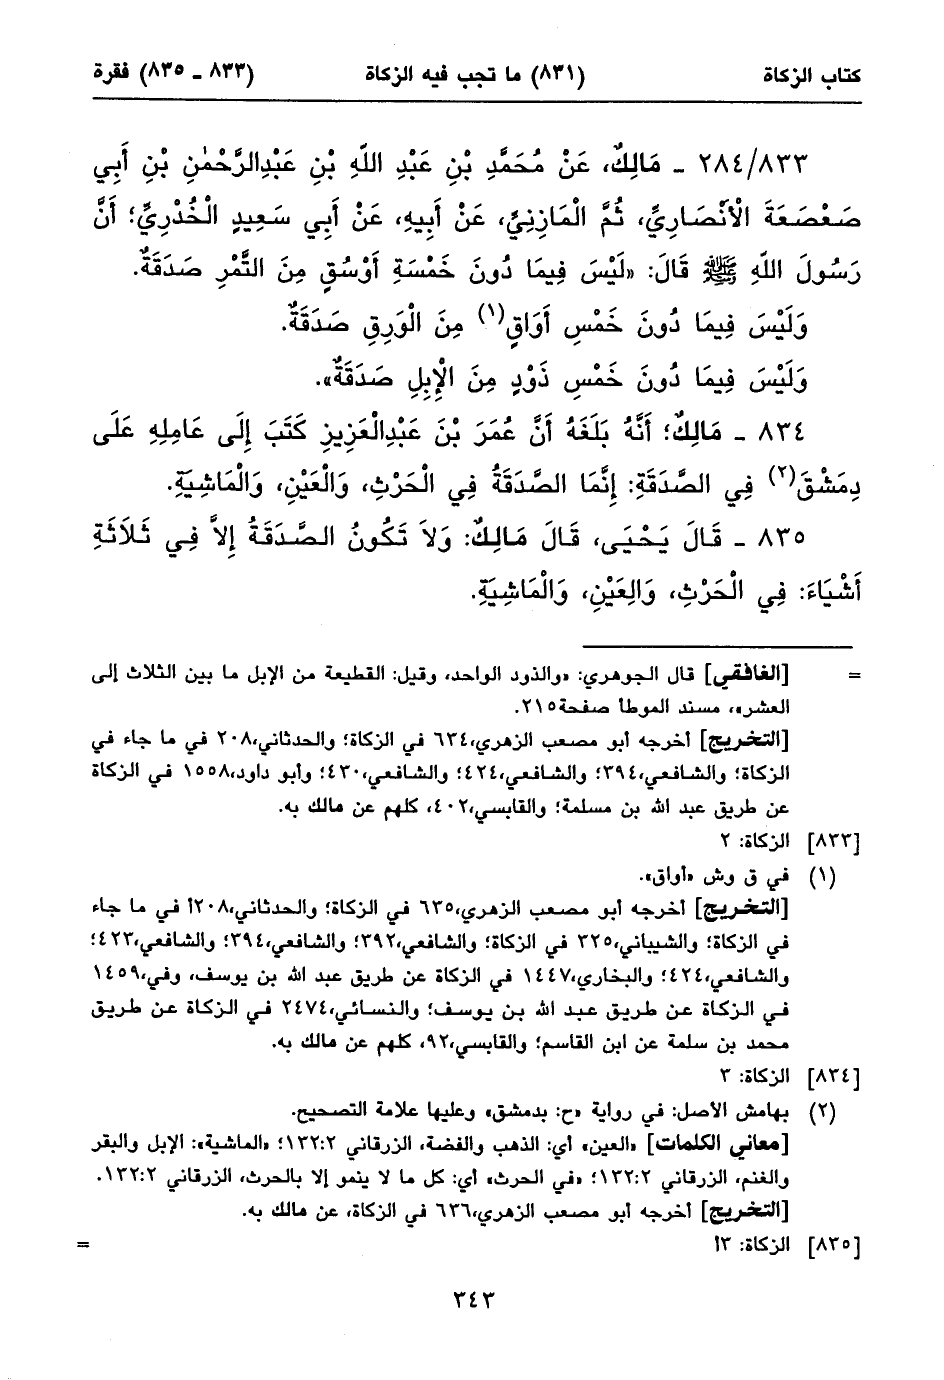 كتاب الزكاة (٨٣١) ما تجب فيه الزكاة (٨٣٣ ـ ٨٣٥) فقرة
٢٨٤/٨٣٣ ـ مَالِكٌ، عَنْ مُحَمَّدِ بْنِ عَبْدِ اللَّهِ بْنِ عَبْدِالرَّحْمٰنِ بْنِ أَبِي
صَعْصَعَةَ الْأَنْصَارِيِّ، ثُمَّ الْمَازِنِيِّ، عَنْ أَبِيهِ، عَنْ أَبِي سَعِيدٍ الْخُدْرِيِّ؛ أَنَّ
رَسُولَ اللَّهِ ﷺ قَالَ: «لَيْسَ فِيمَا دُونَ خَمْسَةِ أَوْسُقٍ مِنَ التَّمْرِ صَدَقَةٌ.
وَلَيْسَ فِيمَا دُونَ خَمْسِ أَوَاقٍ(١) مِنَ الْوَرِقِ صَدَقَةٌ.
وَلَيْسَ فِيمَا دُونَ خَمْسِ ذَوْدٍ مِنَ الْإِبِلِ صَدَقَةٌ».
٨٣٤ ـ مَالِكٌ؛ أَنَّهُ بَلَغَهُ أَنَّ عُمَرَ بْنَ عَبْدِالْعَزِيزِ كَتَبَ إِلَى عَامِلِهِ عَلَى
دِمَشْقَ(٢) فِي الصَّدَقَةِ: إِنَّمَا الصَّدَقَةُ فِي الْحَرْثِ، وَالْعَيْنِ، وَالْمَاشِيَةِ.
٨٣٥ ـ قَالَ يَحْيَى، قَالَ مَالِكٌ: وَلاَ تَكُونُ الصَّدَقَةُ إِلاَّ فِي ثَلاَثَةِ
أَشْيَاءَ: فِي الْحَرْثِ، وَالعَيْنِ، وَالْمَاشِيَةِ.
= [الغافقي] قال الجوهري: «والذود الواحد، وقيل: القطيعة من الإبل ما بين الثلاث إلى
العشر»، مسند الموطأ صفحة٢١٥.
[التخريج] أخرجه أبو مصعب الزهري،٦٣٤ في الزكاة؛ والحدثاني،٢٠٨ في ما جاء في
الزكاة؛ والشافعي،٣٩٤؛ والشافعي،٤٢٤؛ والشافعي،٤٣٠؛ وأبو داود،١٥٥٨ في الزكاة
عن طريق عبد الله بن مسلمة؛ والقابسي،٤٠٢، كلهم عن مالك به.
[٨٣٣] الزكاة: ٢
(١) في ق وش «أواق».
[التخريج] أخرجه أبو مصعب الزهري،٦٣٥ في الزكاة؛ والحدثاني،٢٠٨أ في ما جاء
في الزكاة؛ والشيباني،٣٢٥ في الزكاة؛ والشافعي،٣٩٢؛ والشافعي،٣٩٤؛ والشافعي،٤٢٣؛
والشافعي،٤٢٤؛ والبخاري،١٤٤٧ في الزكاة عن طريق عبد الله بن يوسف، وفي،١٤٥٩
في الزكاة عن طريق عبد الله بن يوسف؛ والنسائي،٢٤٧٤ في الزكاة عن طريق
محمد بن سلمة عن ابن القاسم؛ والقابسي،٩٢، كلهم عن مالك به.
[٨٣٤] الزكاة: ٣
(٢) بهامش الأصل: في رواية «ح: بدمشق» وعليها علامة التصحيح.
[معاني الكلمات] «العين» أي: الذهب والفضة، الزرقاني ١٣٢:٢؛ «الماشية»: الإبل والبقر
والغنم، الزرقاني ١٣٢:٢؛ «في الحرث» أي: كل ما لا ينمو إلا بالحرث، الزرقاني ١٣٢:٢.
[التخريج] أخرجه أبو مصعب الزهري،٦٣٦ في الزكاة، عن مالك به.
[٨٣٥] الزكاة: ٣أ =
٣٤٣